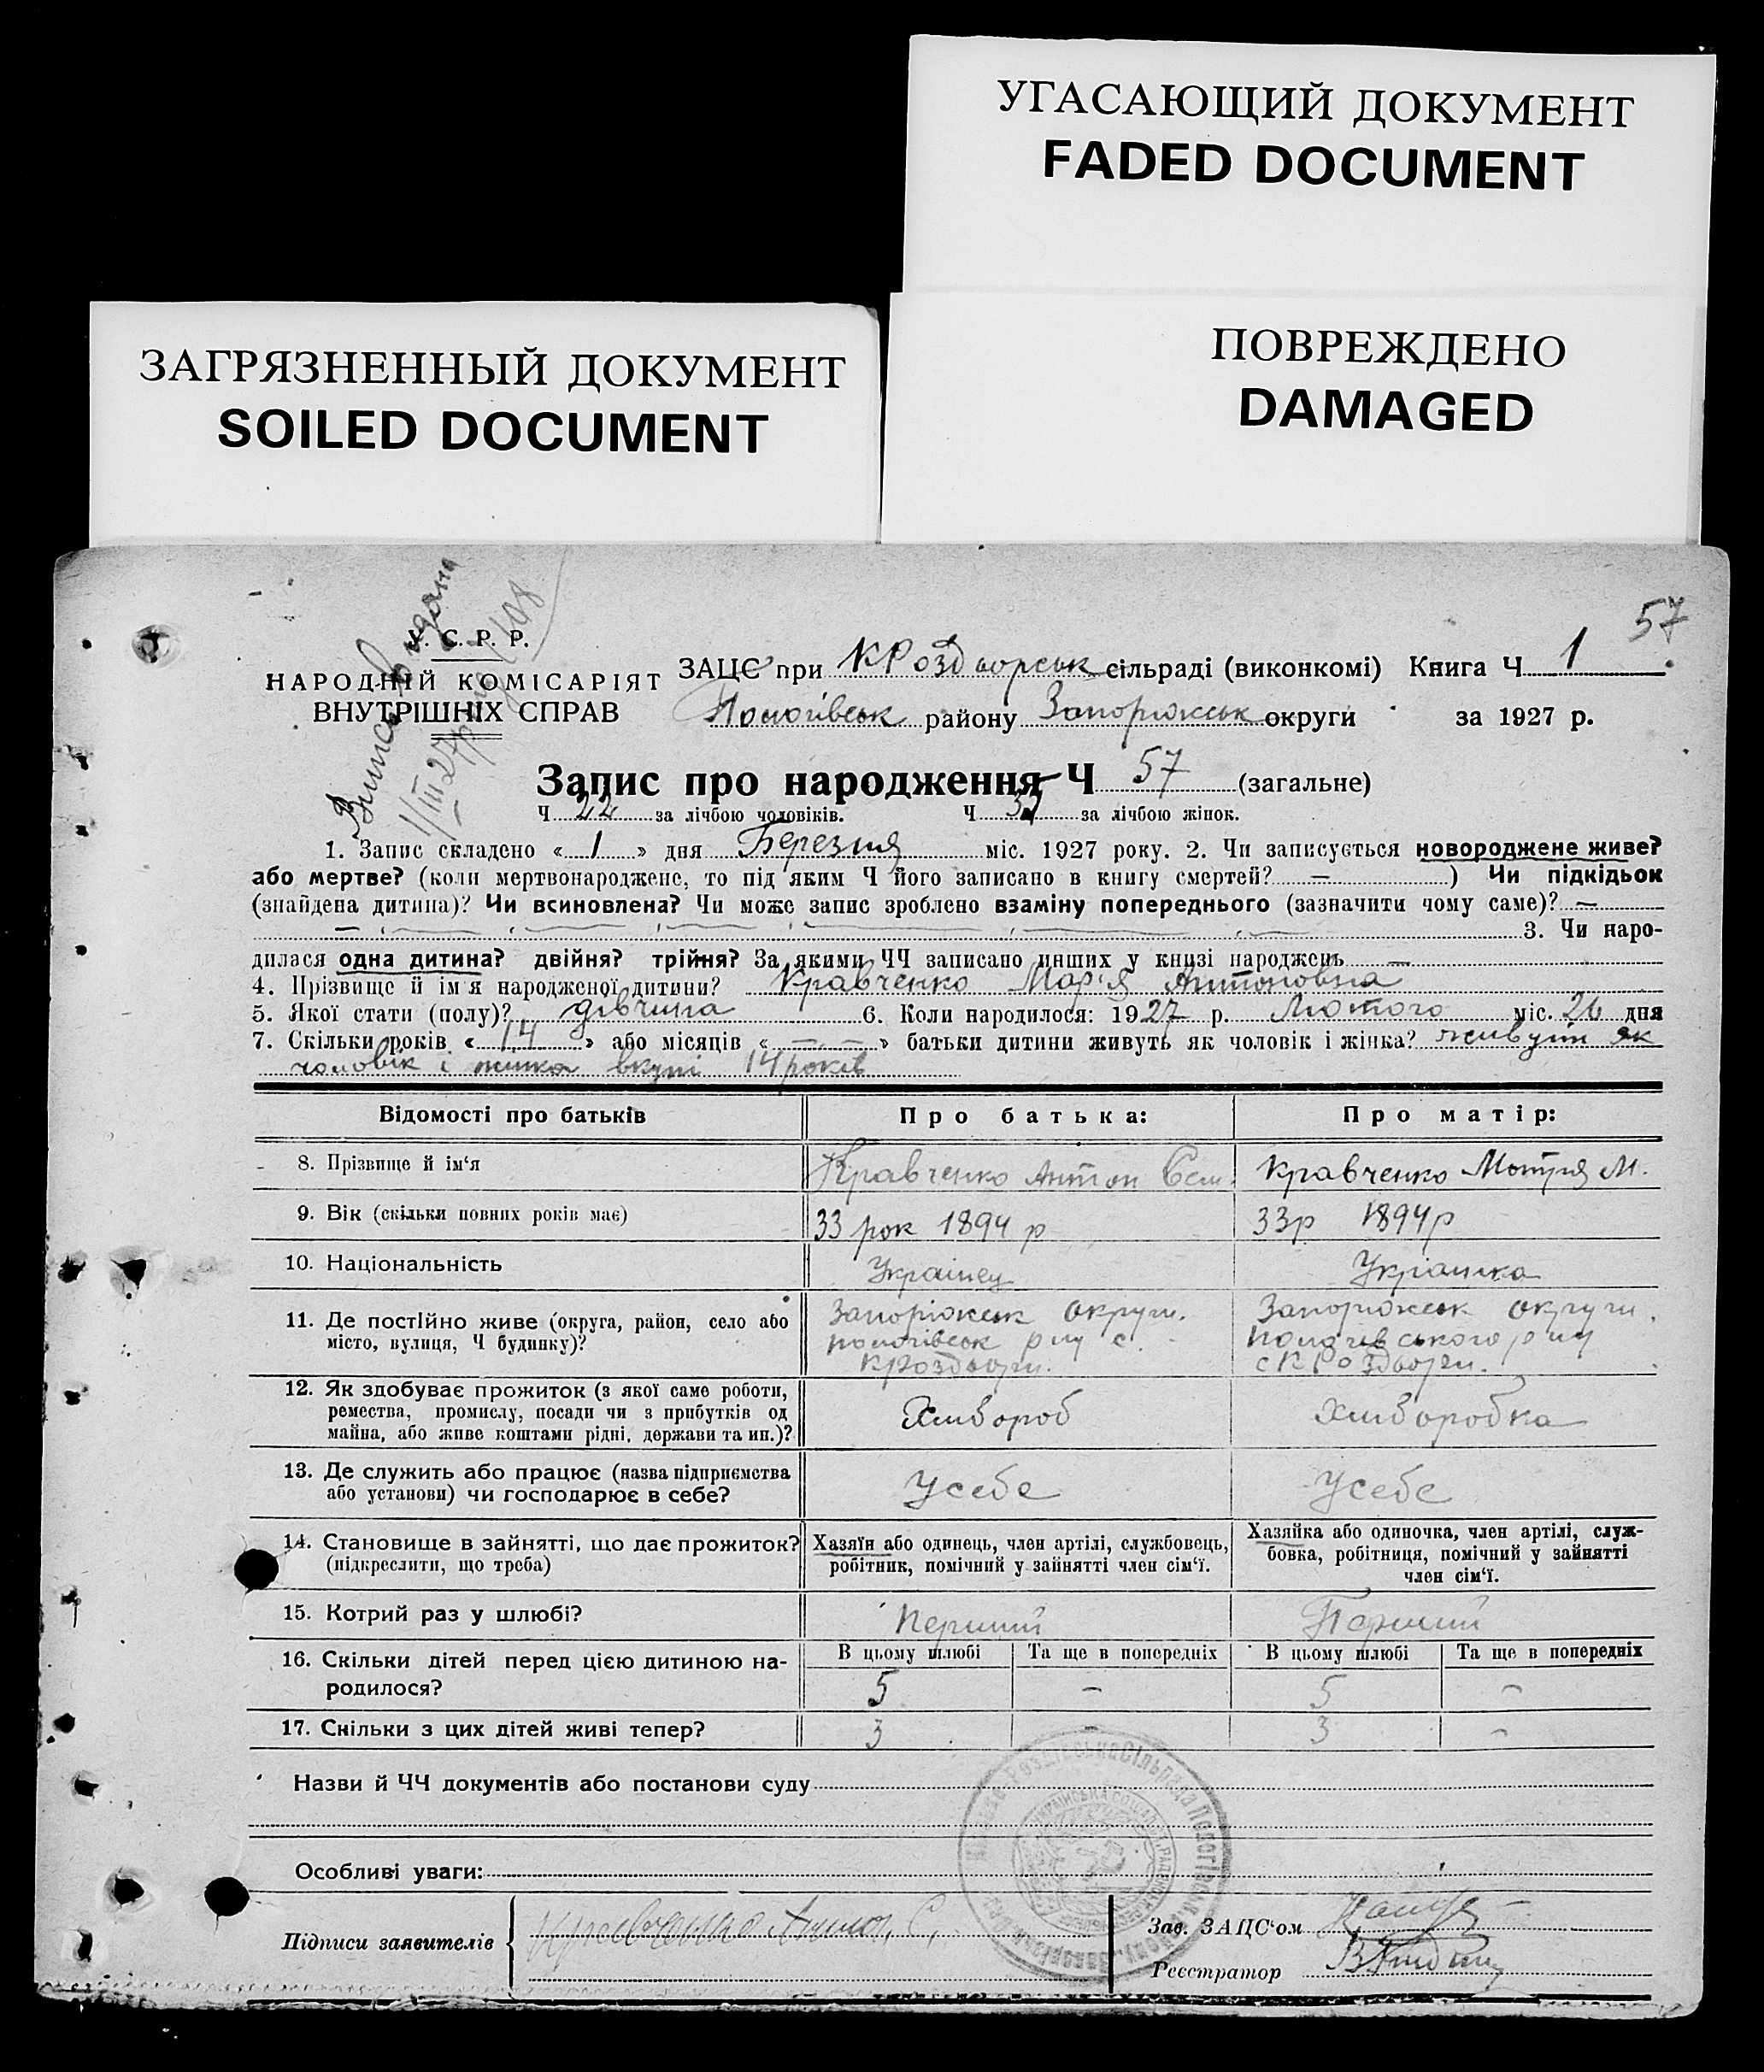 УГАСАЮЩИЙ ДОКУМЕНТ
FADED DOCUMENT
ЗАГРЯЗНЕННЫЙ ДОКУМЕНТ
SOILED DOCUMENT
ПОВРЕЖДЕНО
DAMAGED
57
Випись видана
1/III 27р
У. С. Р. Р.
НАРОДНІЙ КОМІСАРІЯТ
ВНУТРІШНІХ СПРАВ
ЗАЦС при КРоздорськ сільраді (виконкомі) Книга Ч 1
Пологівськ району Запоріжськ округи за 1927 р.
Запис про народження Ч 57 (загальне)
Ч 22 за лічбою чоловіків. Ч 35 за лічбою жінок.
1. Запис складено « 1 » дня Березня міс. 1927 року. 2. Чи записується новороджене живе?
або мертве? (коли мертвонароджене, то під яким Ч його записано в книгу смертей? — ) Чи підкідьок
(знайдена дитина)? Чи всиновлена? Чи може запис зроблено взаміну попереднього (зазначити чому саме)? —
3. Чи наро-
дилася одна дитина? двійня? трійня? За якими ЧЧ записано инших у книзі народжень —
4. Прізвище й ім'я народженої дитини? Кравченко Мар'я Антоновна
5. Якої стати (полу)? дівчина 6. Коли народилося: 1927 р. Лютого міс. 26 дня
7. Скільки років « 14 » або місяців « — » батьки дитини живуть як чоловік і жінка? живуть як
чоловік і жінка вкупі 14 років
Відомості про батьків Про батька: Про матір:
8. Прізвище й ім'я Кравченко Антон Сем. Кравченко Мотря М.
9. Вік (скільки повних років має) 33 рок 1894 р 33р 1894р
10. Національність Українец Українка
11. Де постійно живе (округа, район, село або
місто, вулиця, Ч будинку)?
Запоріжськ округи.
пологівськ р-ну с.
КРоздори.
Запоріжськ округи.
пологівського р-ну
с КРоздори.
12. Як здобуває прожиток (з якої саме роботи,
ремества, промислу, посади чи з прибутків од
майна, або живе коштами рідні, держави та ин.)?
Хлібороб Хліборобка
13. Де служить або працює (назва підприємства
або установи) чи господарює в себе?
Усебе Усебе
14. Становище в зайнятті, що дає прожиток?
(підкреслити, що треба)
Хазяїн або одинець, член артілі, службовець,
робітник, помічний у зайнятті член сім'ї.
Хазяйка або одиночка, член артілі, служ-
бовка, робітниця, помічний у зайнятті
член сім'ї.
15. Котрий раз у шлюбі? Перший Перший
16. Скільки дітей перед цією дитиною на-
родилося?
В цьому шлюбі Та ще в попередніх В цьому шлюбі Та ще в попередніх
5 – 5 –
17. Скільки з цих дітей живі тепер? 3 – 3 –
Назви й ЧЧ документів або постанови суду
Особливі уваги:
Підписи заявителів Кравченко Антон С,
Зав. ЗАЦС'ом
Реєстратор